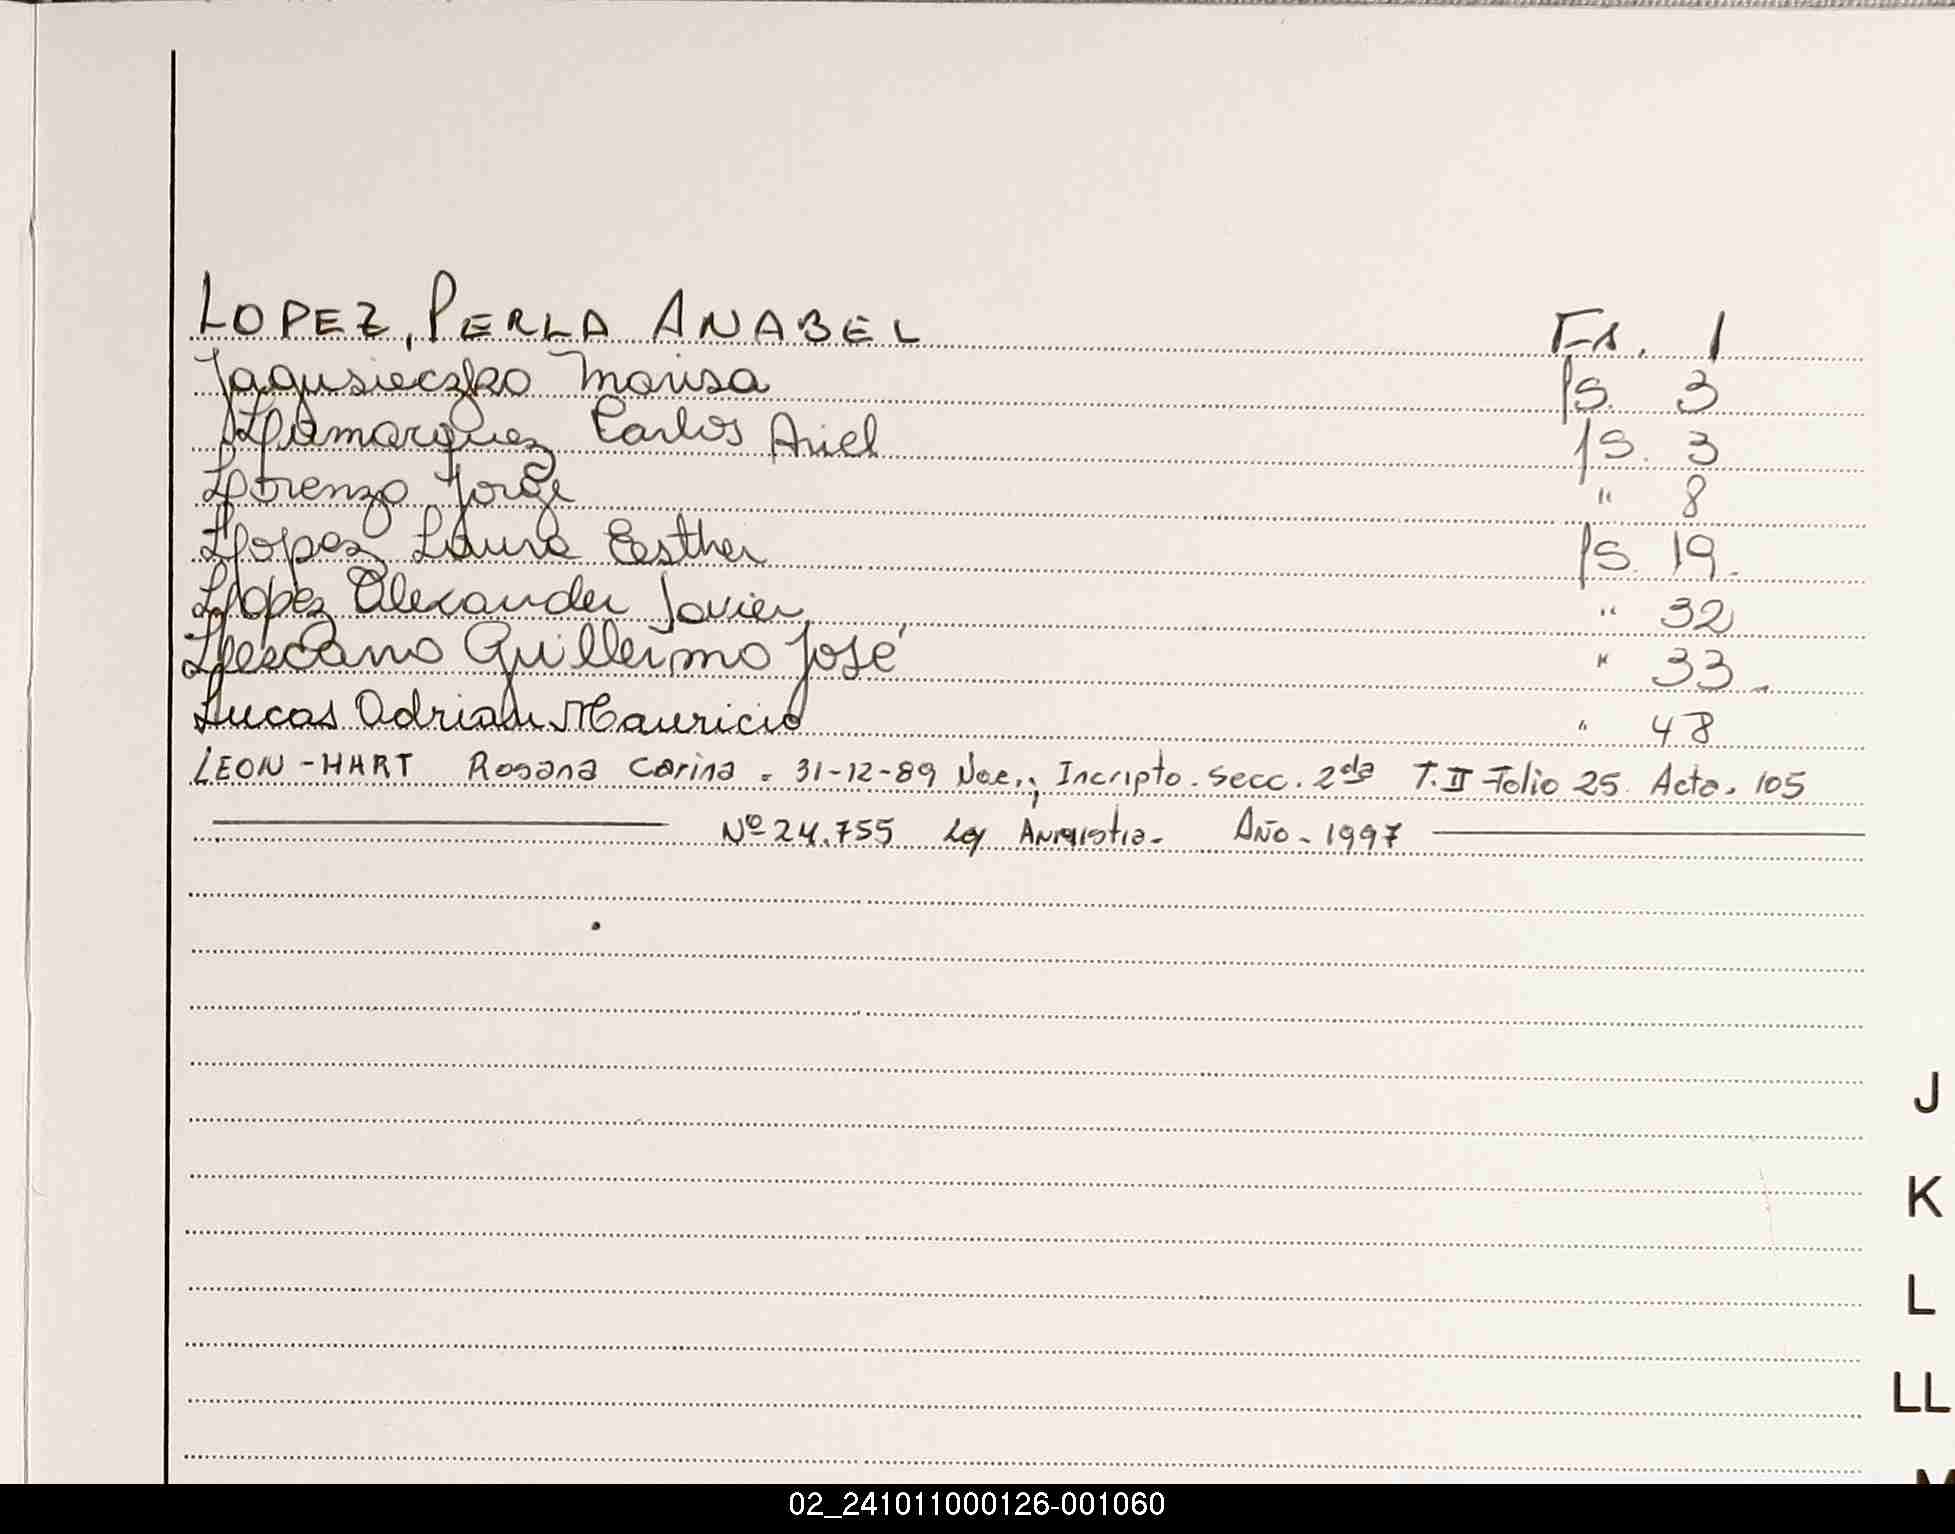 LOPEZ, PERLA ANABEL Fs. 1
Jagusieczko Marisa fs. 3
Lamarquez Carlos Ariel fs. 3
Lorenzo Jorge " 8
Lopez Laura Eesther fs. 19.
Lopez Alexander Javier " 32
Lescano Guillermo José " 33.
Lucas Adrian Mauricio " 48
LEON-HART Rosana Carina. 31-12-89 Nac.; Incripto. Secc. 2da T. II Folio 25 Acta. 105
Nº 24.755 Ley Amnistia- Año-1997
J
K
L
LL
M
02_241011000126-001060